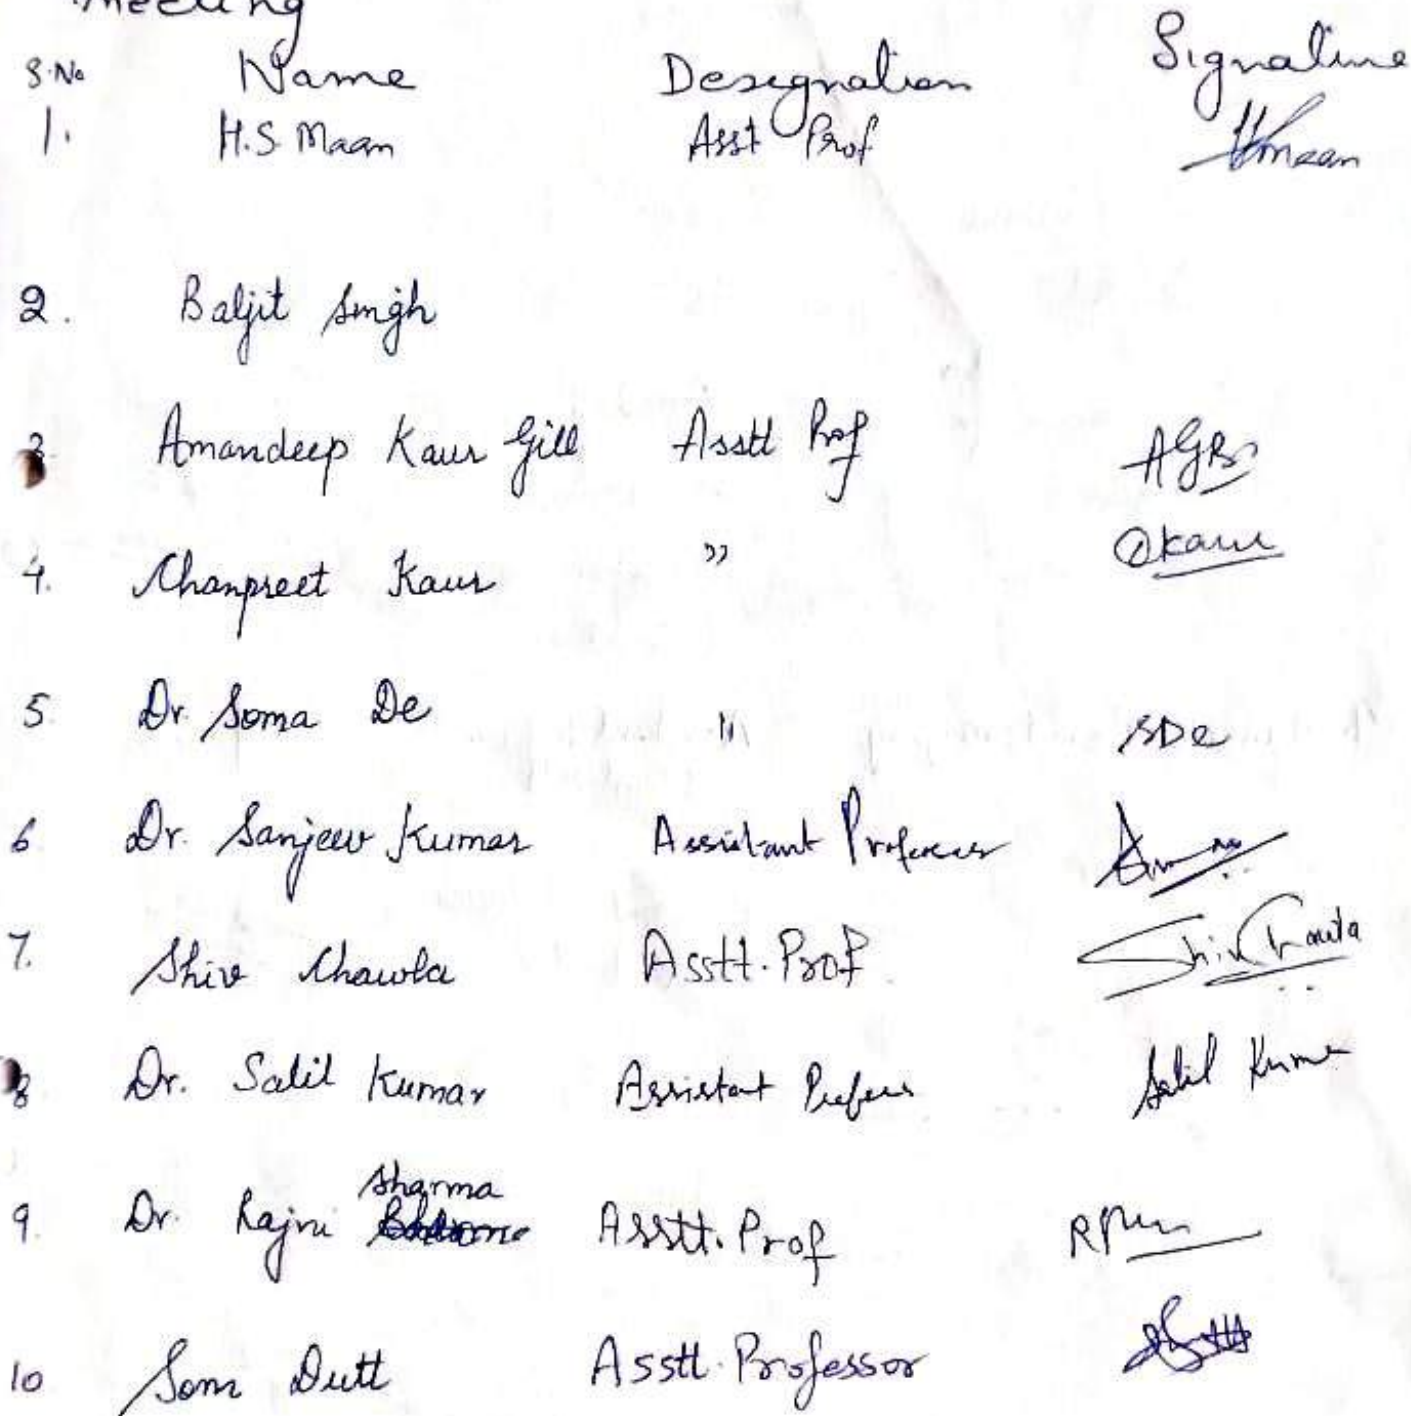 Meeting
S.No Name Designation Signature
1. H.S. Maan Asst Prof Hmaan
2. Baljit Singh
3. Amandeep Kaur Gill Asstt Prof
4. Chanpreet Kaur " Ckaur
5. Dr. Soma De " SDe
6. Dr. Sanjeev Kumar Assistant Professor
7. Shiv Chawla Asstt. Prof. Shiv Chawla
8. Dr. Salil Kumar Assistant Professor Salil Kumar
9. Dr. Rajni Sharma Asstt. Prof
10 Som Dutt Asstt. Professor